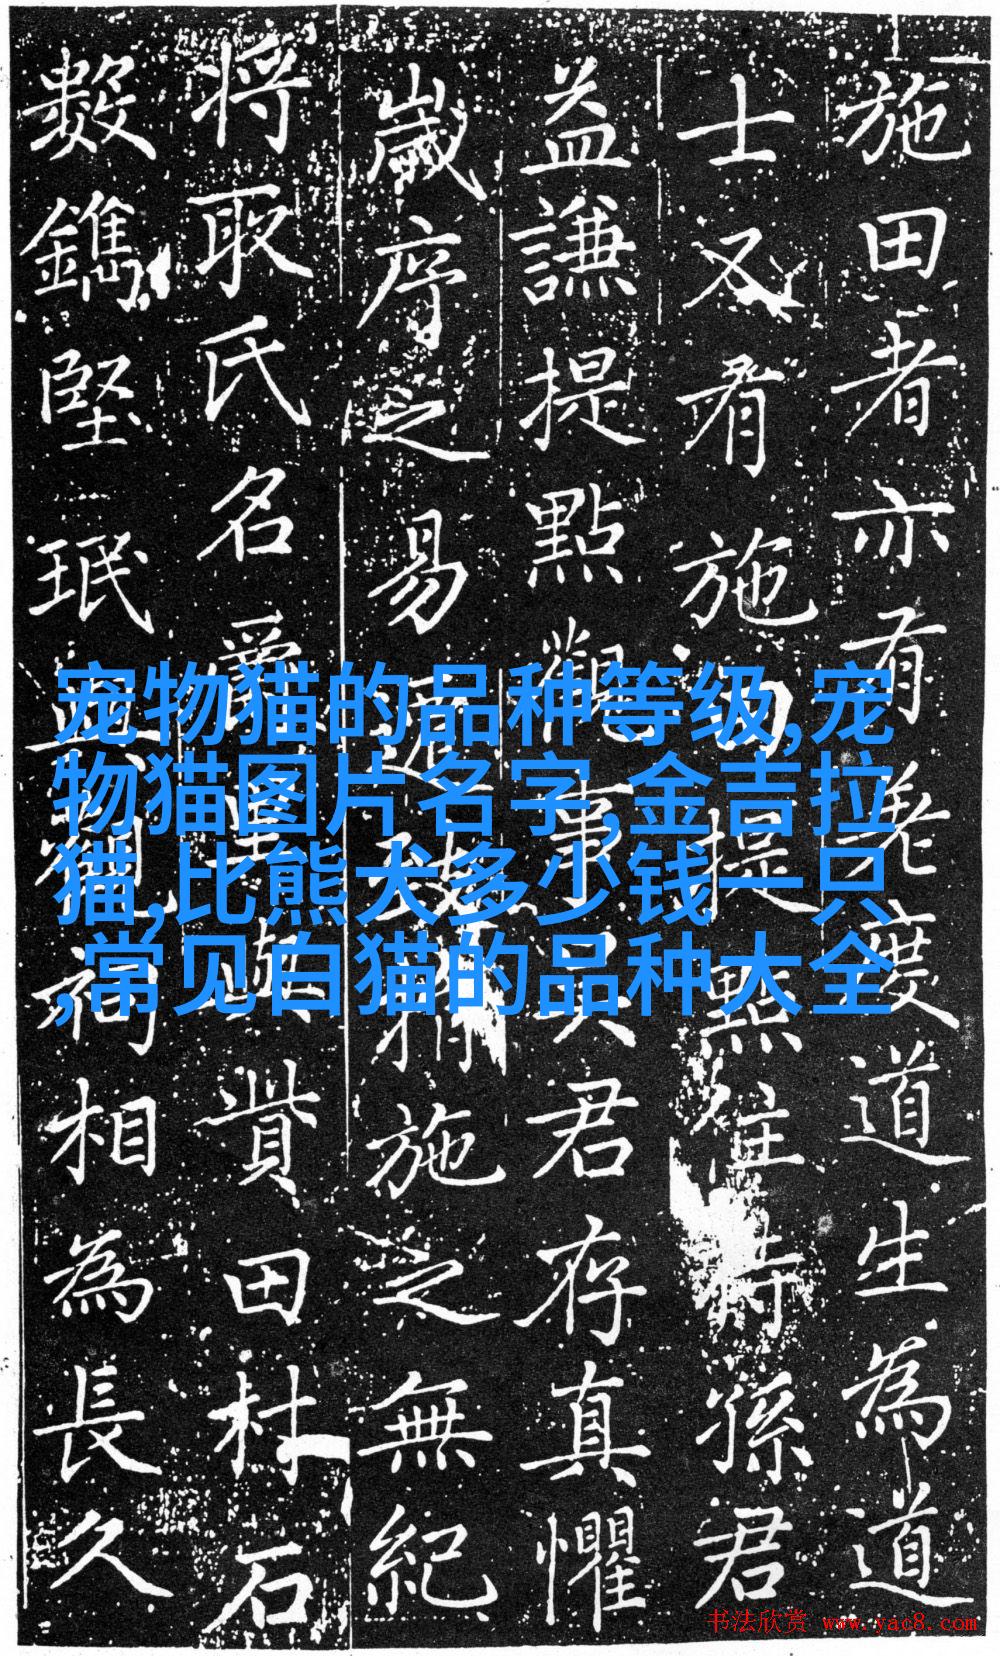 施田者亦有度道生為道
士又有施田提點住持孫君
益謙提點觀事君存真懼
歲序之易施之無紀
將取氏名爵貲田村石
數鐫堅珉相為長久
宠物猫的品种等级,宠
物猫图片名字,金吉拉
猫,比熊犬多少钱一只
,常见白猫的品种大全
书法欣赏 www.yac8.com